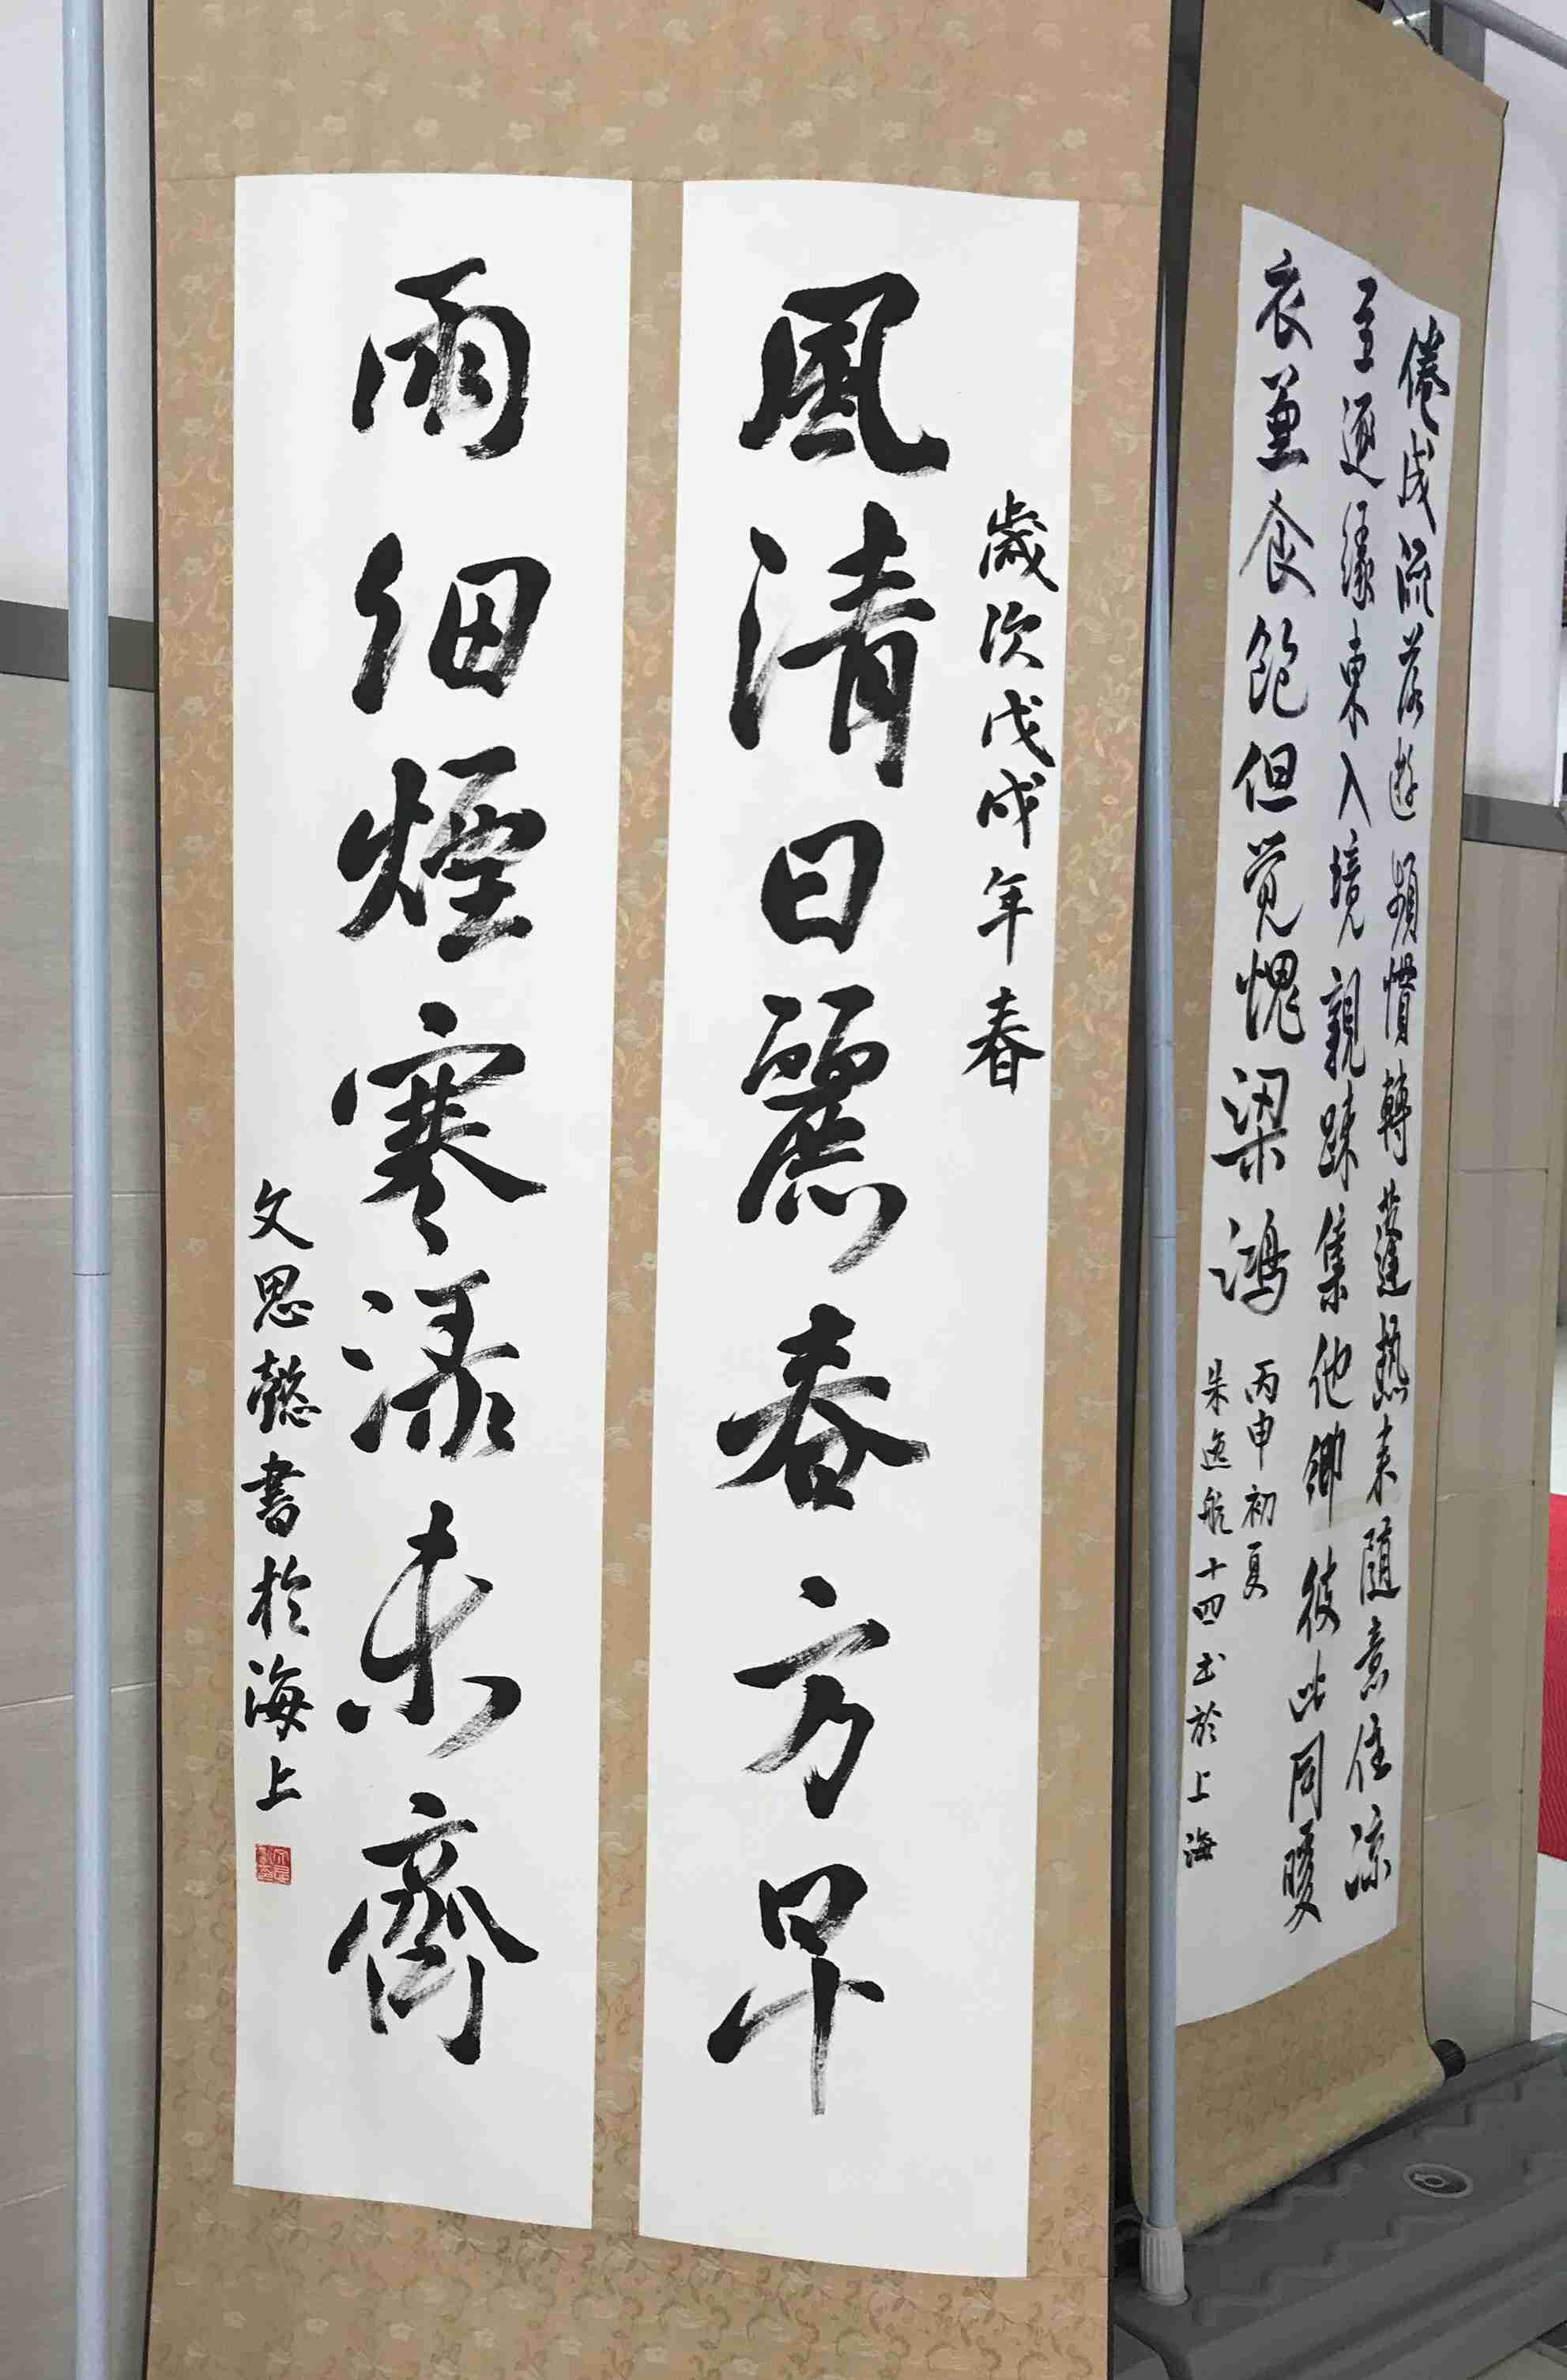 歲次戊戌年春
風清日麗春方早
雨細煙寒淥未齊
文思懿書於海上
倦成流落遊頻慣轉蓬熱來隨意住涼
至逐緣東入境親疎集他鄉彼此同暖
衣兼食飽但覺愧梁鴻
丙申初夏
朱逸航十四书於上海